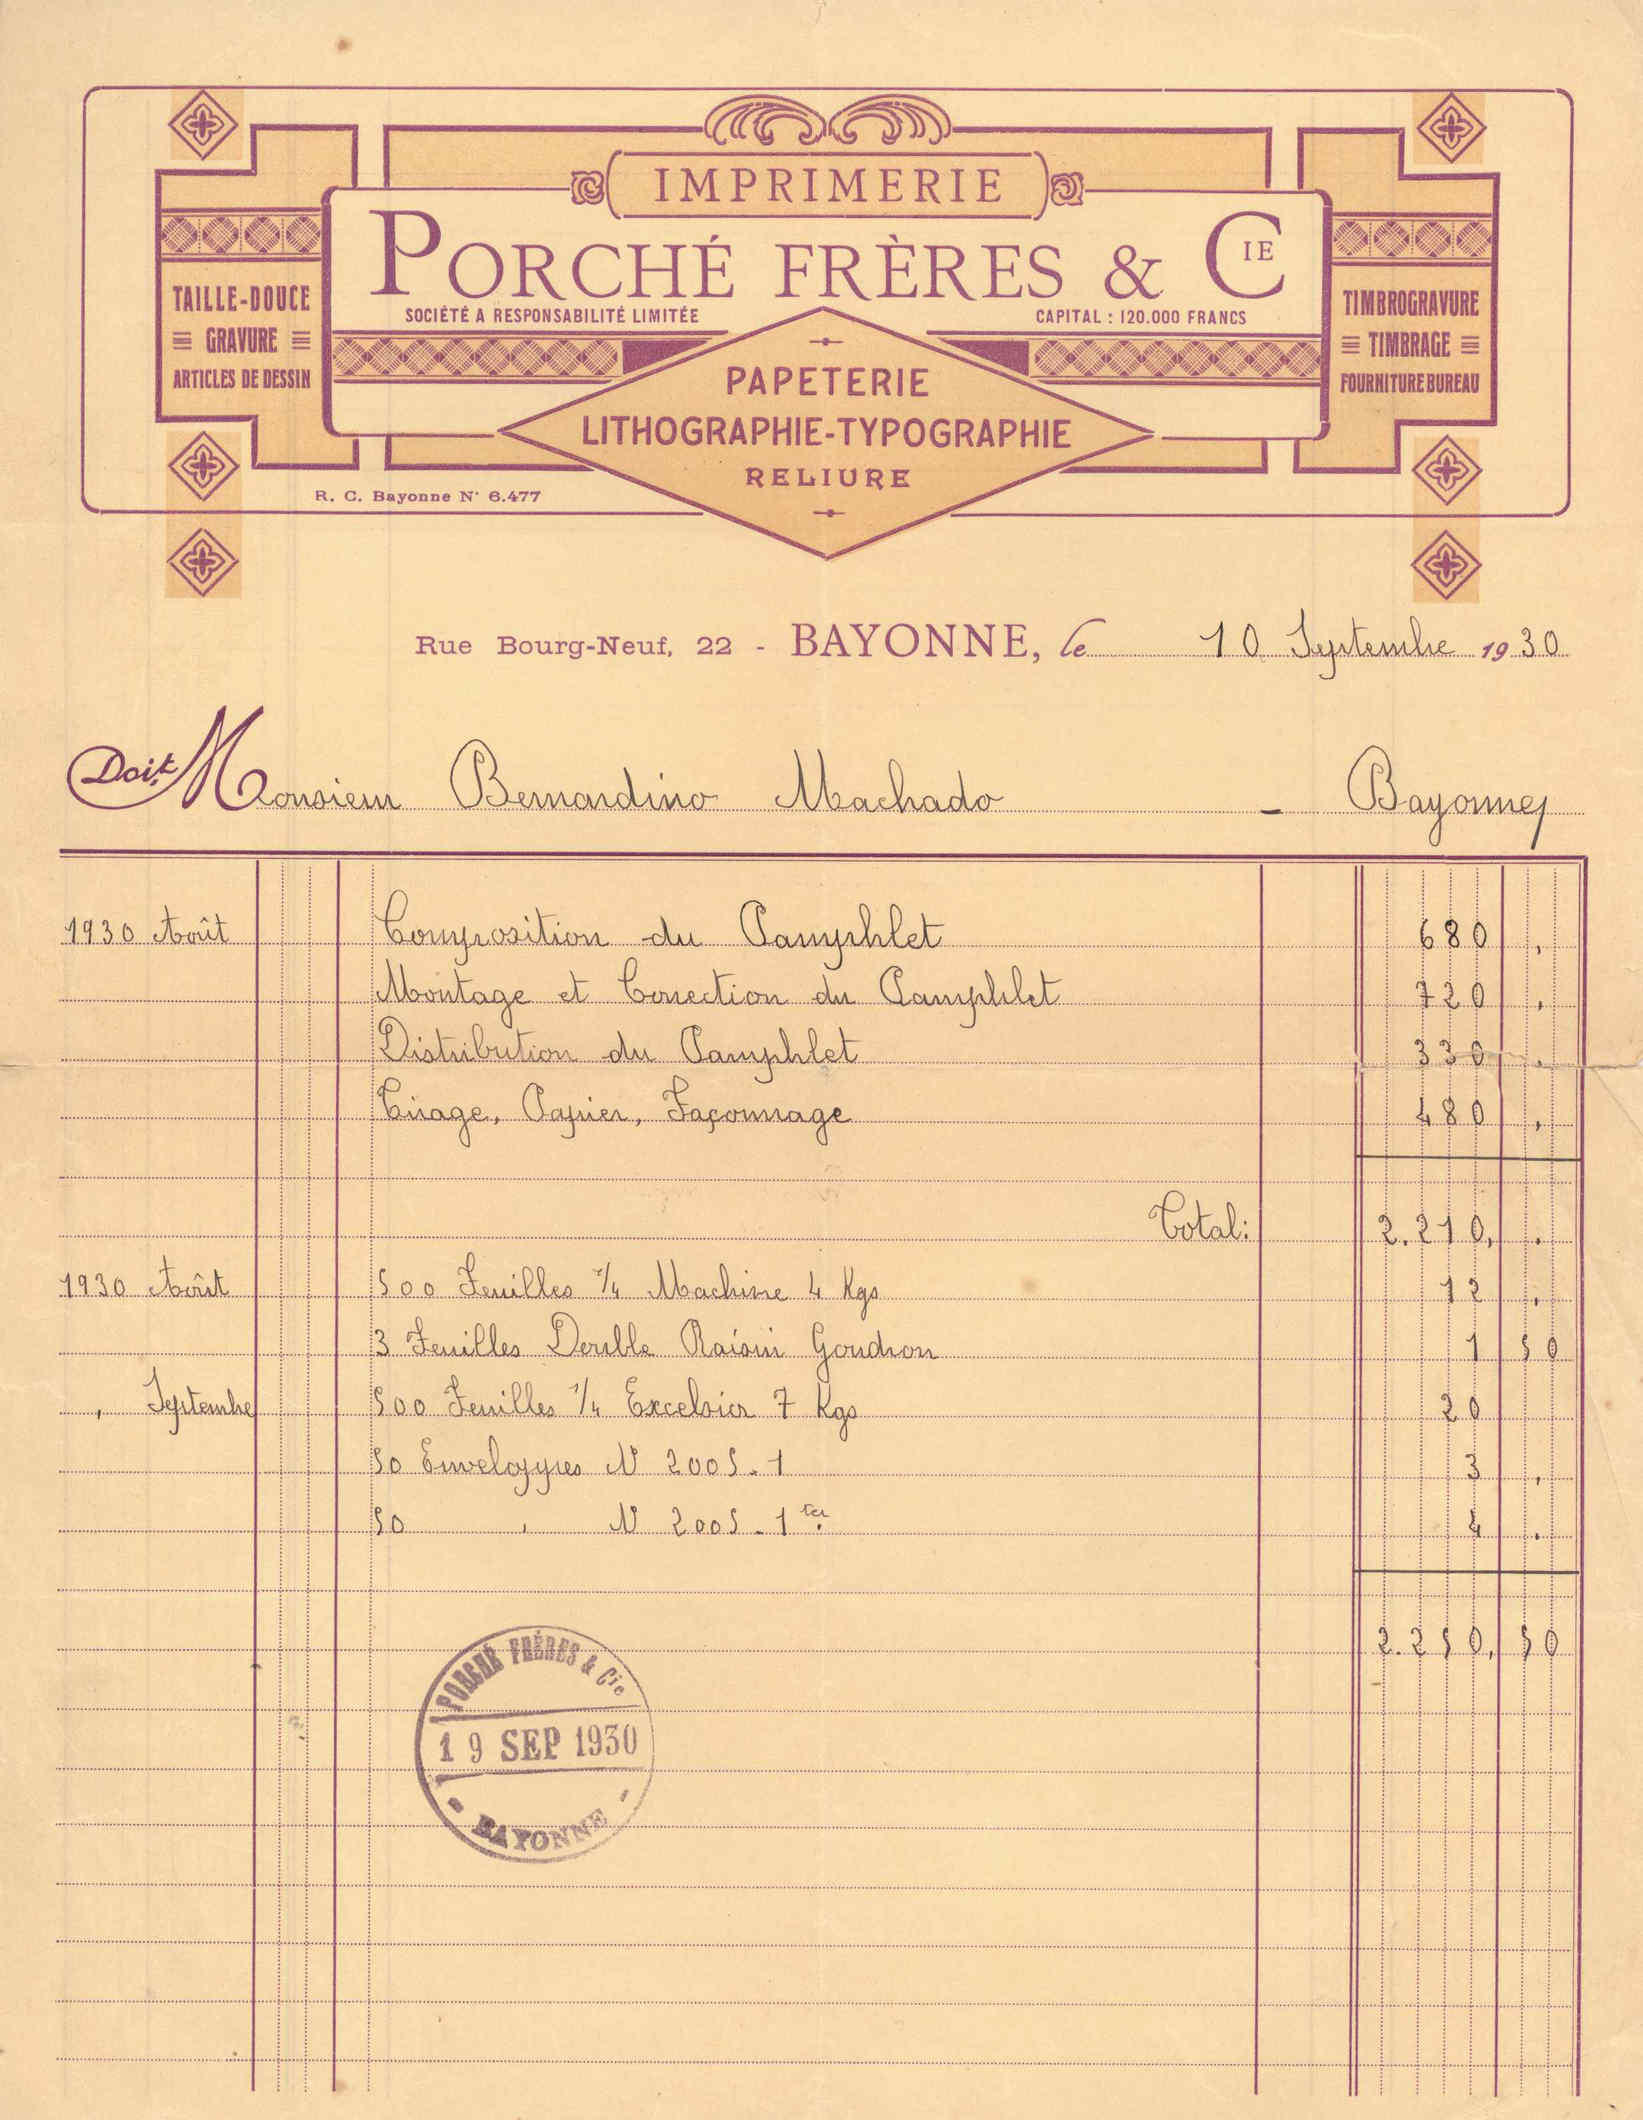 IMPRIMERIE
PORCHÉ FRÈRES & CIE
SOCIÉTÉ A RESPONSABILITÉ LIMITÉE
CAPITAL : 120.000 FRANCS
TAILLE-DOUCE
GRAVURE
ARTICLES DE DESSIN
TIMBROGRAVURE
TIMBRAGE
FOURNITURE BUREAU
PAPETERIE
LITHOGRAPHIE-TYPOGRAPHIE
RELIURE
R. C. Bayonne N° 6.477
Rue Bourg-Neuf, 22 - BAYONNE, le 10 Septembre 1930
Doit Monsieur Bernardino Machado - Bayonne
1930 Août Composition du Pamphlet 680 ,
Montage et Correction du Pamphlet 720 ,
Distribution du Pamphlet 330 ,
Tirage, Papier, Façonnage 480 ,
Total: 2.210, .
1930 Août 500 Feuilles 1/4 Machine 4 Kgs 12 ,
3 Feuilles Double Raisin Goudron 1 50
, Septembre 500 Feuilles 1/4 Excelsior 7 Kgs 20
50 Enveloppes N° 2005-1 3 ,
50 , N° 2005-1 ter 4 .
2.250, 50
PORCHÉ FRÈRES & Cie
19 SEP 1930
- BAYONNE -